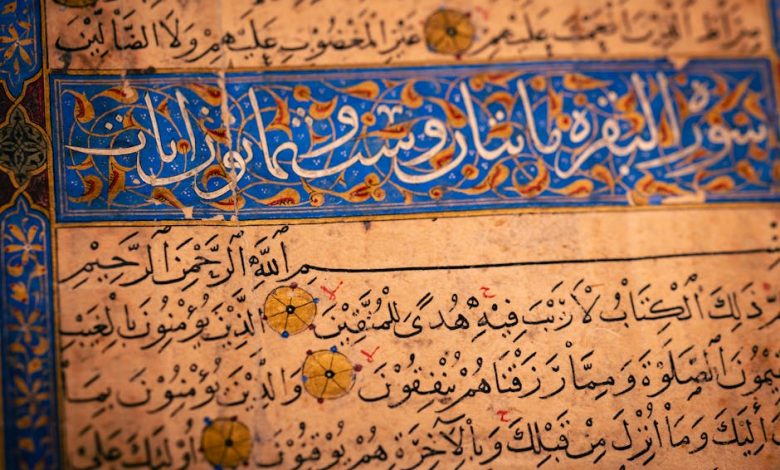 صِرَاطَ الَّذِينَ أَنْعَمْتَ عَلَيْهِمْ غَيْرِ الْمَغْضُوبِ عَلَيْهِمْ وَلَا الضَّالِّينَ
سورة البقرة مايتان وست وثمانون ايات
ـمِ ٱللَّهِ ٱلرَّحْمَٰنِ ٱلرَّحِيْمِ
ذَٰلِكَ ٱلْكِتَابُ لَا رَيْبَ فِيْهِ هُدًى لِلْمُتَّقِيْنَ الَّذِيْنَ يُؤْمِنُوْنَ بِالْغَيْبِ
ـيمُوْنَ الصَّلٰوةَ وَمِمَّا رَزَقْنَاهُمْ يُنْفِقُوْنَ وَالَّذِيْنَ يُؤْمِنُوْنَ بِمَا
إِلَيْكَ وَمَا أُنْزِلَ مِنْ قَبْلِكَ وَبِالْآخِرَةِ هُمْ يُوْقِنُوْنَ أُولَٰئِكَ عَلَىٰ